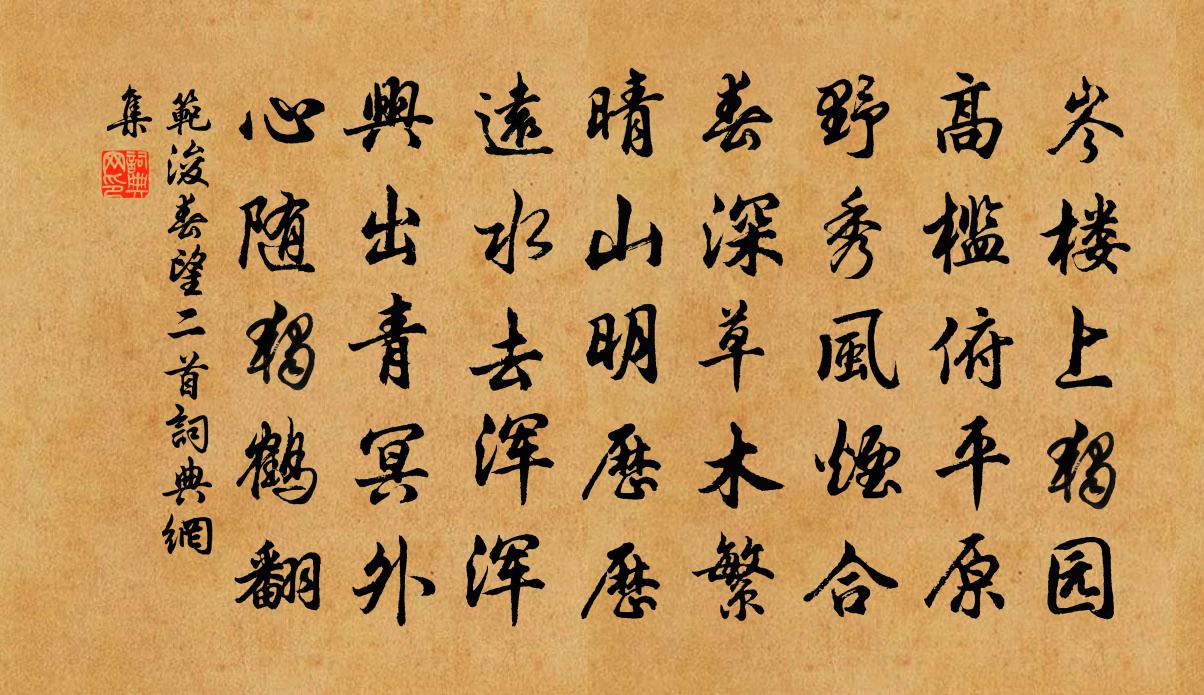 岑楼上独园
高槛俯平原
野秀風煙合
春深草木繁
晴山明歷歷
遠水去浑浑
興出青冥外
心随独鶴翻
範浚春望二首詞典網
集
詞典
网印